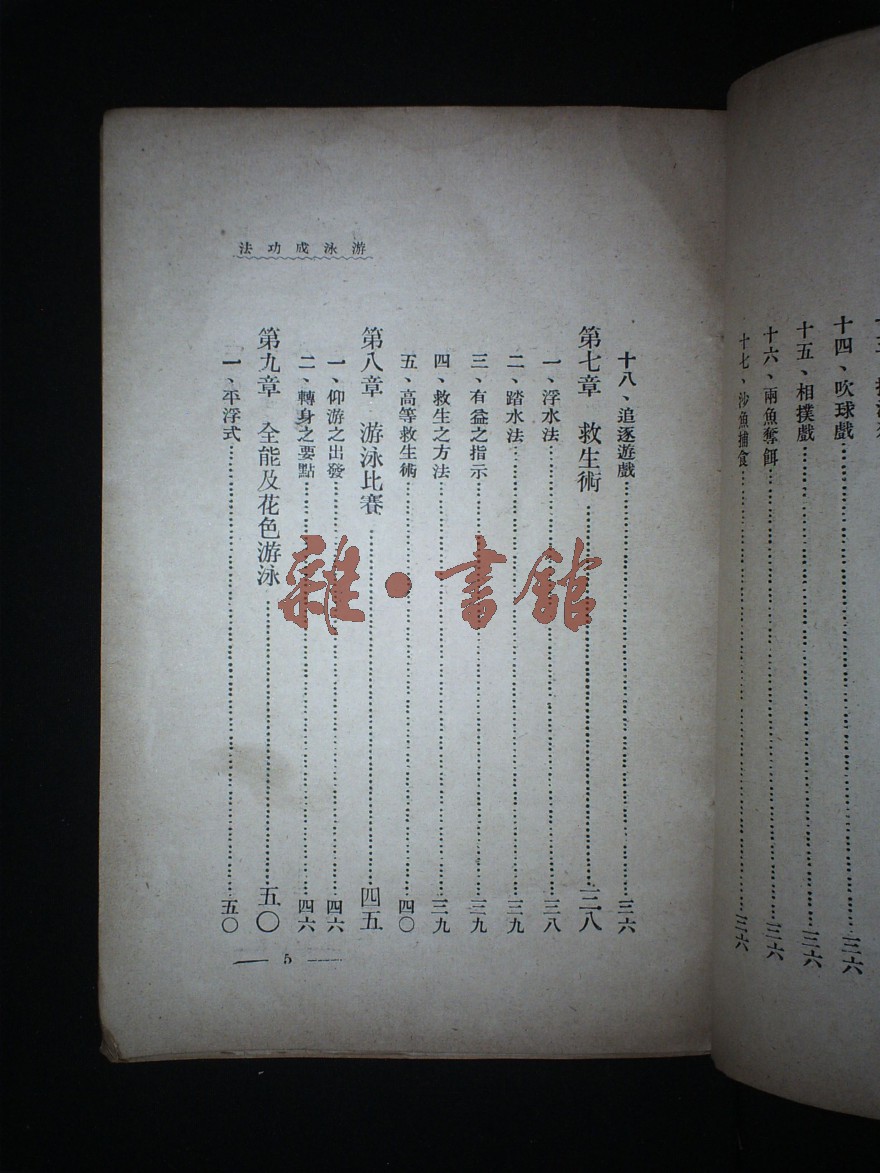 十四、吹球戲……三六
十五、相撲戲……三六
十六、兩魚奪餌……三六
十七、沙魚捕食……三六
游泳成功法
十八、追逐遊戲……三六
第七章 救生術……三八
一、浮水法……三八
二、踏水法……三九
三、有益之指示……三九
四、救生之方法……三九
五、高等救生術……四〇
第八章 游泳比賽……四五
一、仰游之出發……四六
二、轉身之要點……四六
第九章 全能及花色游泳……五〇
一、平浮式……五〇
— 5 —
雜·書館